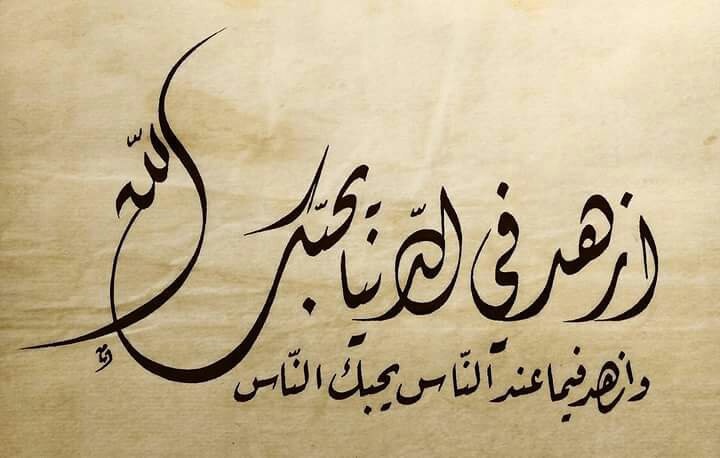 ازهد في الدّنيا يحبّك اللّه
وازهد فيما عند النّاس يحبك النّاس